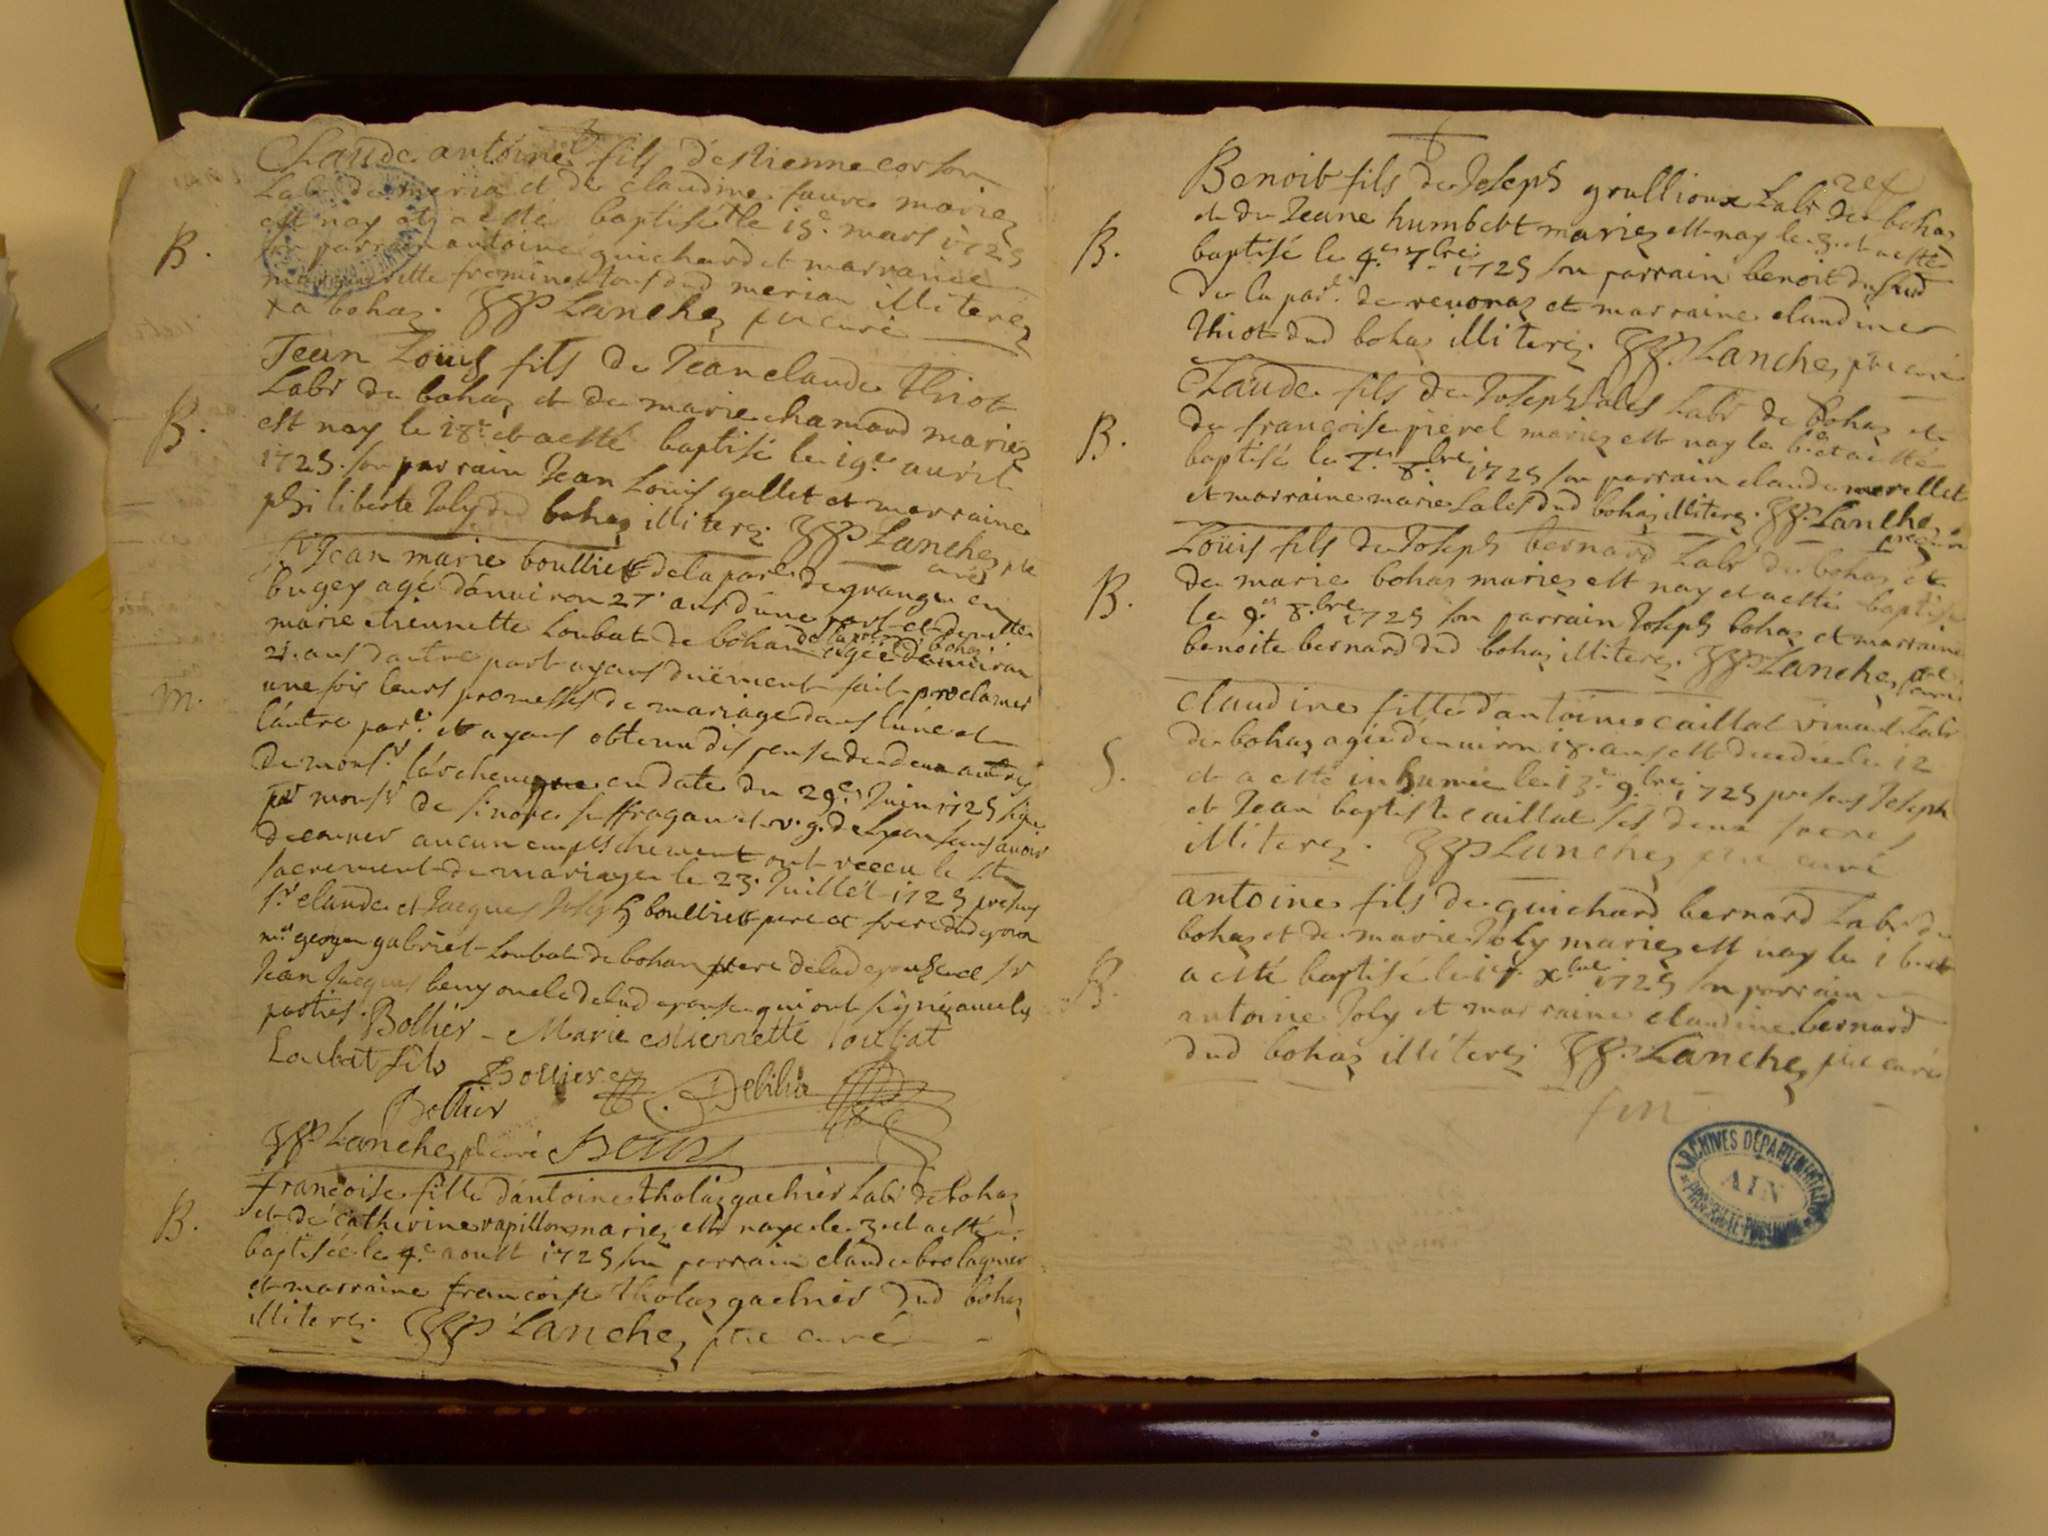 Claude antoine fils d'estienne corson
Labr de meria et de claudine faure mariez
est nay et a esté baptisé le 18e mars 1725
B.
son parrain antoine guichard et marraine
tous dud merian illiterez
a bohaz. Lanchez ptre curé
Jean Loüis fils de Jean claude thiot
Labr de bohaz et de marie chamard mariez
B.
est nay le 18e et a esté baptisé le 19e auril
1725. son parrain Jean Loüis gallet et marraine
philiberte Joly dud bohaz illiterez. Lanchez ptre
curé
sr Jean marie boullier de la parse de grange en
bugey agé d'enuiron 27 ans d'une part et demlle
marie etiennette Loubat de bohan de la parse bohaz agée d'enuiron
21. ans dautre part ayans düement fait proclamer
M.
une fois leurs promesses de mariage dans lune et
l'autre parse et ayans obtenu dispense de deux autres
de monsr l'archeuesque en date du 29e Juin 1725 signé
par monsr de sinope suffragan et v. g. de Lyon sans auoir
decouuer aucun empeschement ont receu le st
sacrement de mariage le 23. Juillet 1725 presens
sr claude et Jacques Joseph boullier pere et frere dud epoux
mre george gabriel Loubat de bohan frere de lad epouse et sr
Jean Jacques beny oncle de lad epouse qui ont signé auec les
parties. Bollier - Marie estiennette loubat
Loubat fils Bollier
Debilia
Bollier
Lanchez p curé
francoise fille d'antoine tholaz gachier Labr de bohaz
B.
et de catherine rapillon mariez est naye le 3. et a esté
baptisée le 4e aoust 1725 son parrain claude brolaquier
et marraine francoise tholaz gachier dud bohaz
illiterez. Lanchez ptre curé
Benoit fils de Joseph grullioux Labr de bohaz
et de Jeane humbert mariez est nay le 3. et a esté
B.
baptisé le 4e 7bre 1725 son parrain benoit
de la parse de reuonaz et marraine claudine
thiot dud bohaz illiterez. Lanchez ptre curé
Claude fils de Joseph Sales Labr de bohaz et
B.
de francoise pierel mariez est nay le 6e et a esté
baptisé le 7e 8bre 1725 son parrain claude morellet
et marraine marie Sales dud bohaz illiterez. Lanchez
ptre curé
Loüis fils de Joseph bernard Labr de bohaz et
B.
de marie bohas mariez est nay et a esté baptisé
le 9e 8bre 1725 son parrain Joseph bohaz et marraine
benoite bernard dud bohaz illiterez. Lanchez ptre
curé
claudine fille d'antoine caillat viuant Labr
de bohaz agée d'enuiron 18. ans est decedée le 12
S.
et a esté inhumée le 13e 9bre 1725 presens Joseph
et Jean baptiste caillat ses deux freres
illiterez. Lanchez ptre curé
antoine fils de guichard bernard Labr de
bohaz et de marie Joly mariez est nay le 16 et
B.
a esté baptisé le 17e xbre 1725 son parrain
antoine Joly et marraine claudine bernard
dud bohaz illiterez Lanchez ptre curé
fin
ARCHIVES DÉPARTEMENTALES
AIN
PROPRIÉTÉ PUBLIQUE